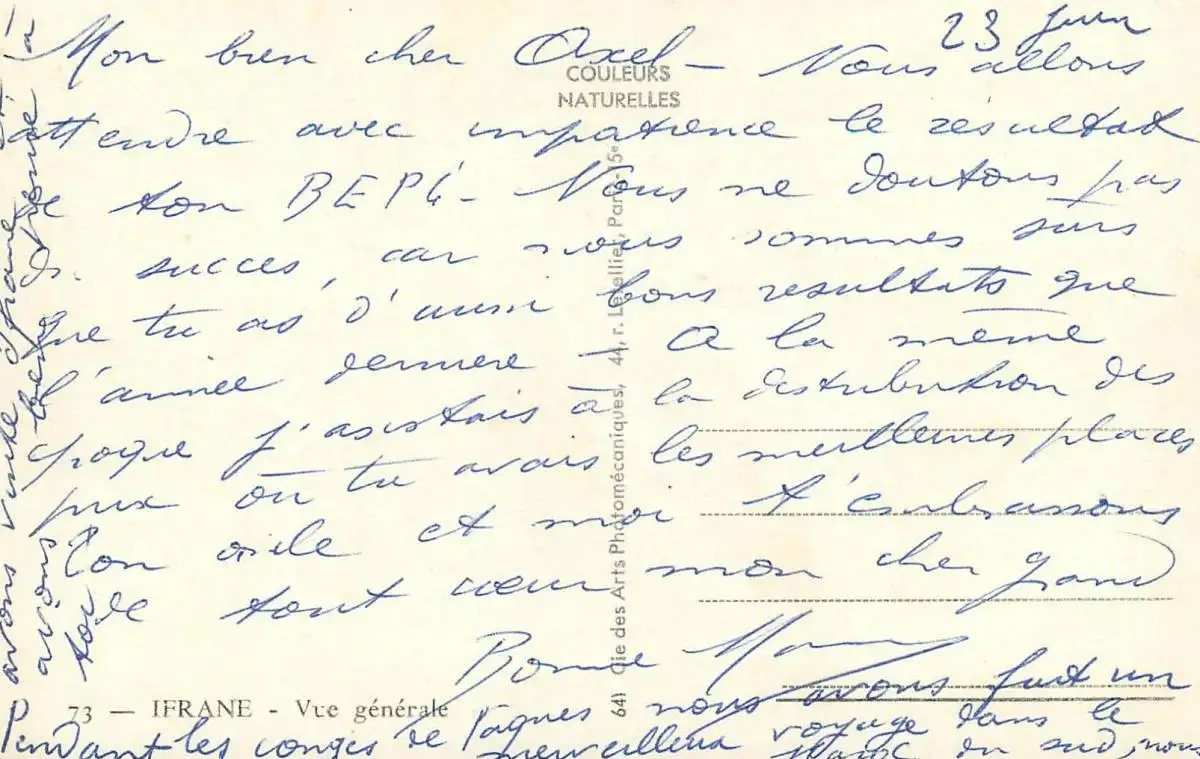 23 juin
Mon bien cher Axel – Nous allons
attendre avec impatience le résultat
de ton BEPC – Nous ne doutons pas
du succès, car nous sommes sûrs
que tu as d'aussi bons resultats que
l'année dernière – A la même
époque j'assistais à la distribution des
prix où tu avais les meilleures places
Ton oncle et moi t'embrassons
de tout cœur mon cher grand
Bonne Maman
Pendant les congés de Pâques nous avons fait un
merveilleux voyage dans le
Maroc du sud, nous
avons visité Ifrane et
avons beaucoup pensé à
toi
COULEURS
NATURELLES
641 Cie des Arts Photomécaniques, 44, r. Letellier, Paris-15e
73 — IFRANE - Vue générale